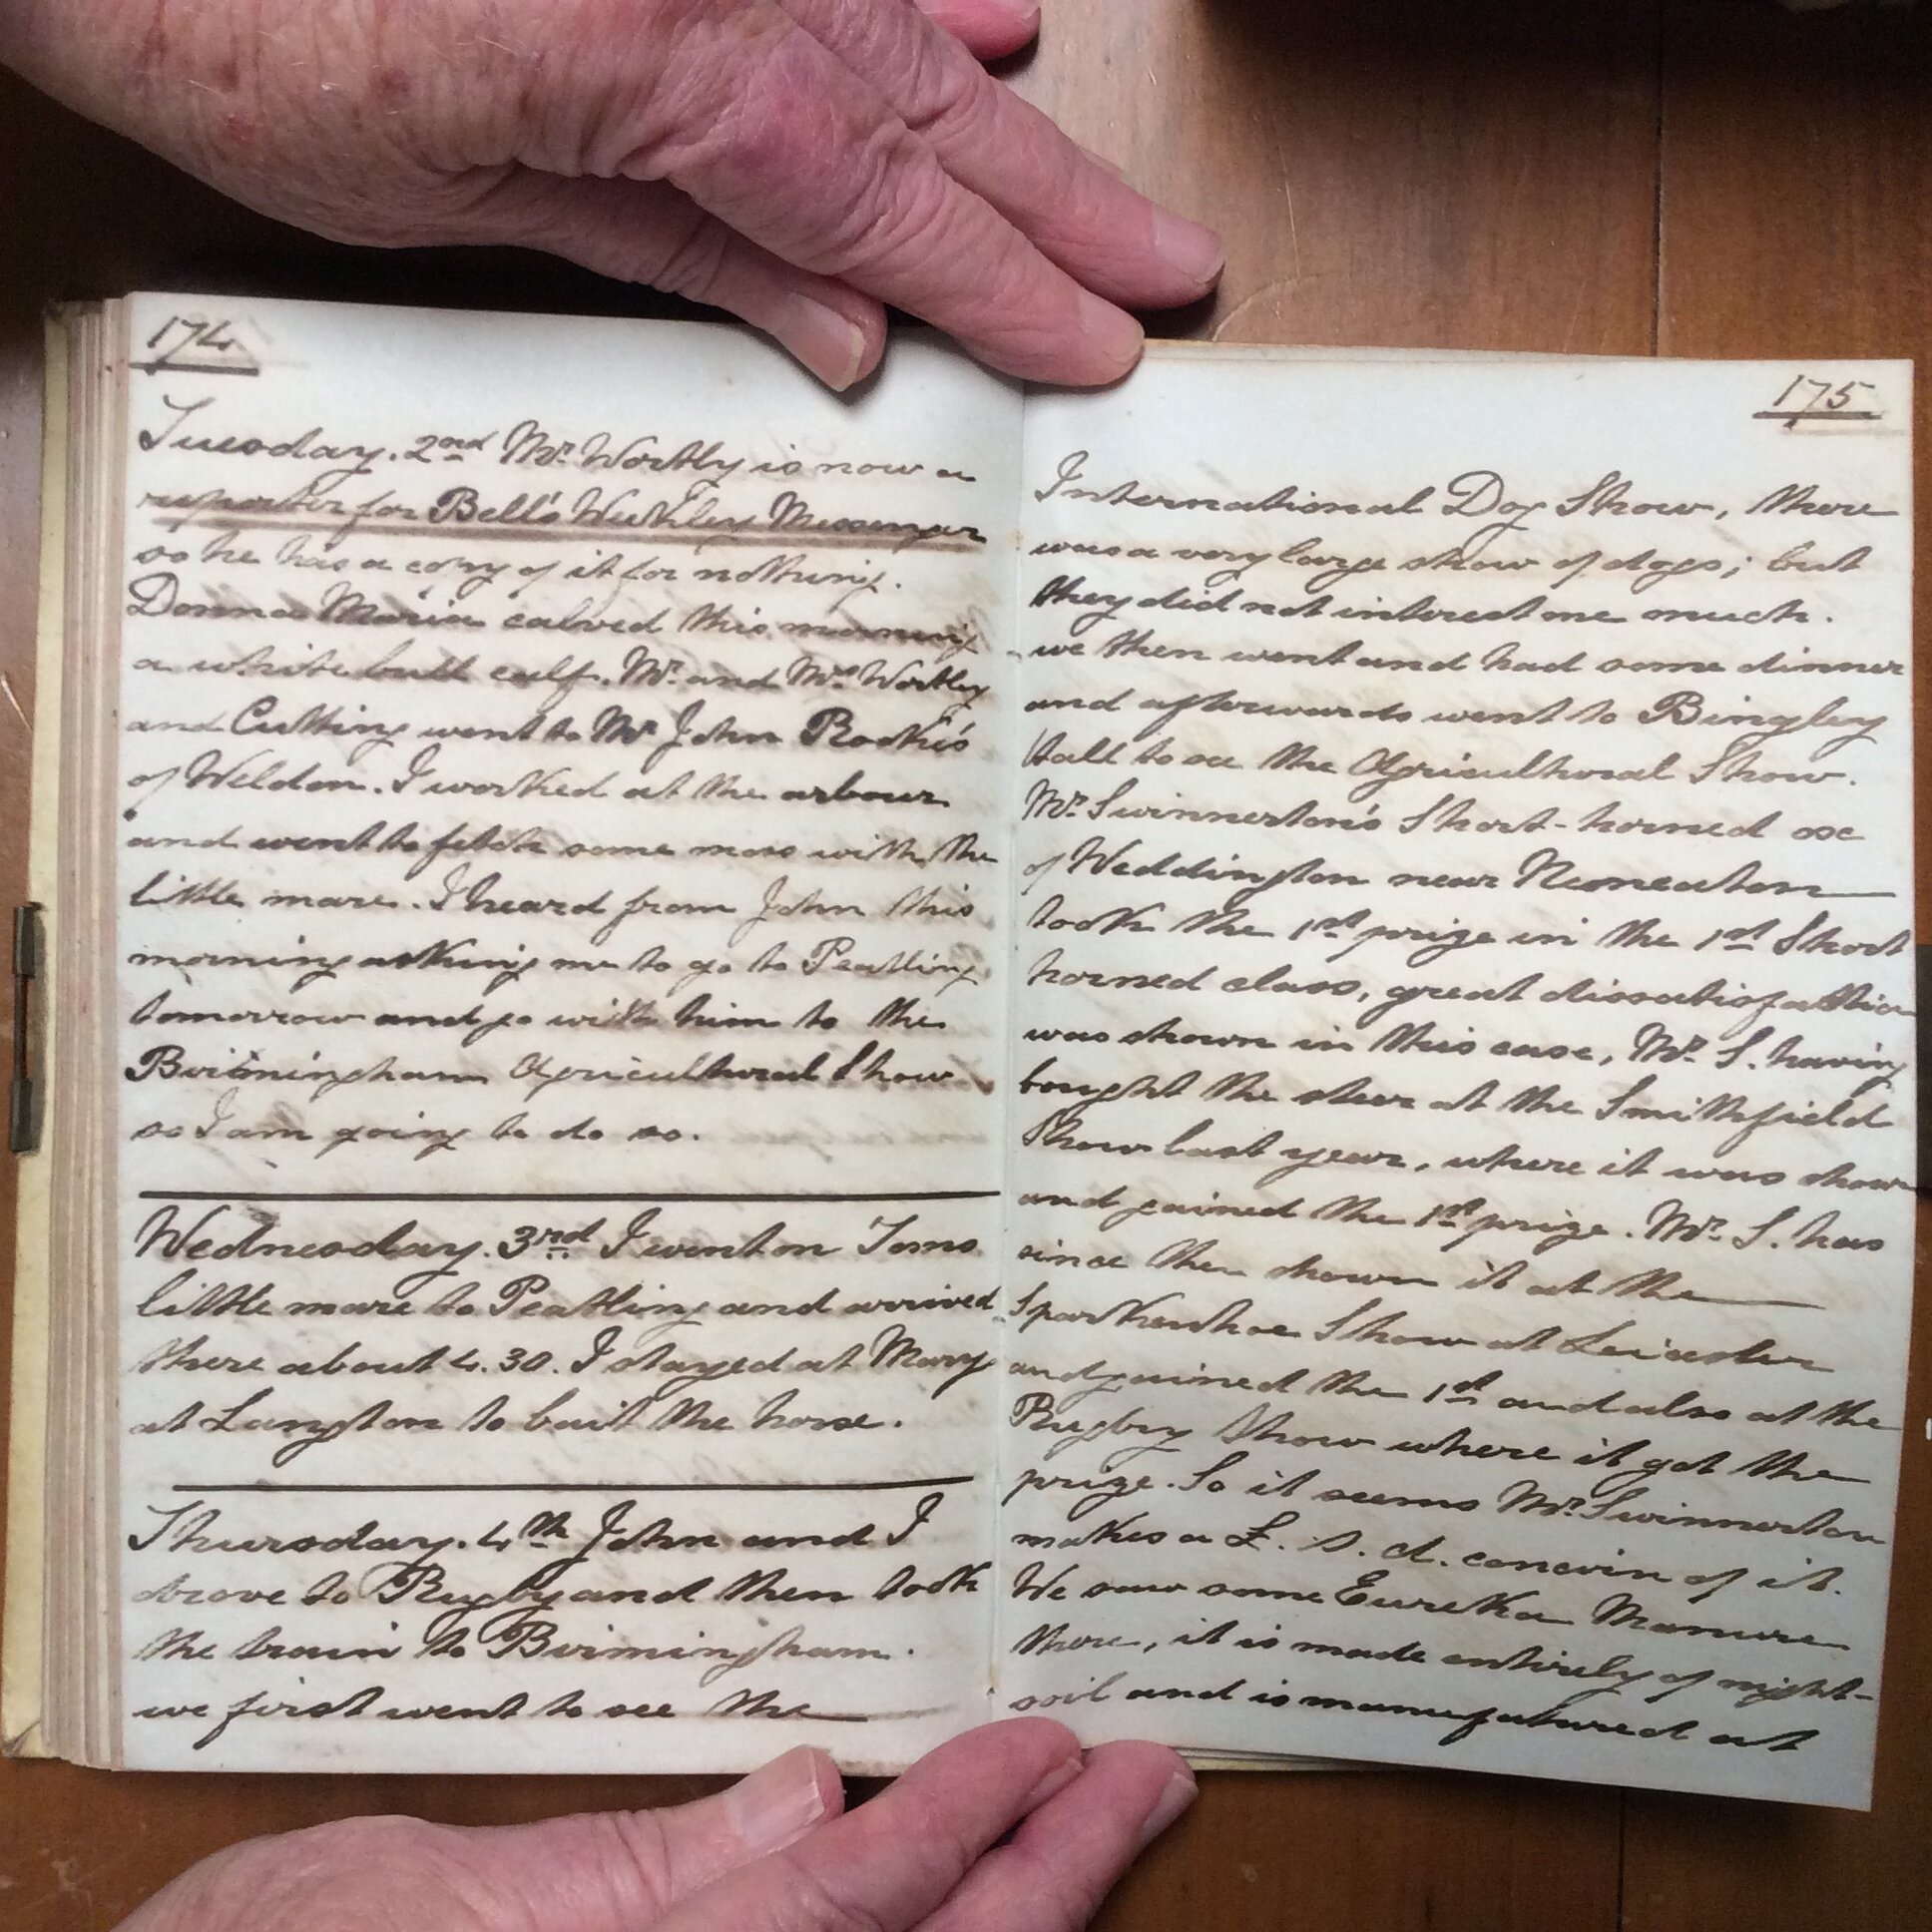 174
Tuesday. 2nd Mr. Wortly is now a
reporter for Bell's Weekley Messenger
so he has a copy of it for nothing.
Donna Maria calved this morning
a white bull calf. Mr. and Mrs. Wortley
and Cutting went to Mr John Rooke's
of Weldon. I worked at the arbour
and went to fetch some moss with the
little mare. I heard from John this
morning asking me to go to Peatling
tomorrow and go with him to the
Birmingham Agricultural Show
so I am going to do so.
Wednesday. 3rd I went on Toms
little mare to Peatling and arrived
there about 4.30. I stayed at Mary
at Langton to bait the horse.
Thursday. 4th John and I
drove to Rugby and then took
the train to Birmingham.
we first went to see the
175
International Dog Show, there
was a very large show of dogs; but
they did not interest me much.
we then went and had some dinner
and afterwards went to Bingley
Hall to see the Agricultural Show.
Mr. Swinnerton's Short-horned ox
of Weddington near Nuneaton
took the 1st prize in the 1st Short
horned class, great dissatisfaction
was shown in this case, Mr. S. having
bought the steer at the Smithfield
Show last year, where it was shown
and gained the 1st prize. Mr. S. has
since then shown it at the
Sparkenhoe Show at Leicester
and gained the 1st and also at the
Rugby Show where it got the
prize. So it seems Mr. Swinnerton
makes a £. s. d. concern of it.
We saw some Eureka Manure
there, it is made entirely of night-
soil and is manufatured at